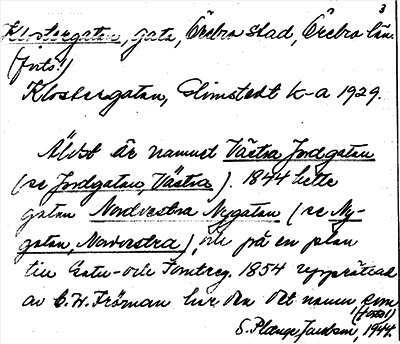 3
Klostergatan, gata, Örebro stad, Örebro län.
(forts.)
Klostergatan, Elmstedt K-a 1929.
Äldst är namnet Västra Jordgatan
(se Jordgatan, Västra). 1844 hette
gatan Nordvestra Nygatan (se Ny-
gatan, Nordvestra), och på en plan
till Gatu- och Tomtreg. 1854 upprättad
av C. W. Fröman har den det namn som
(forts!)
S. Plange Jacobson, 1944.